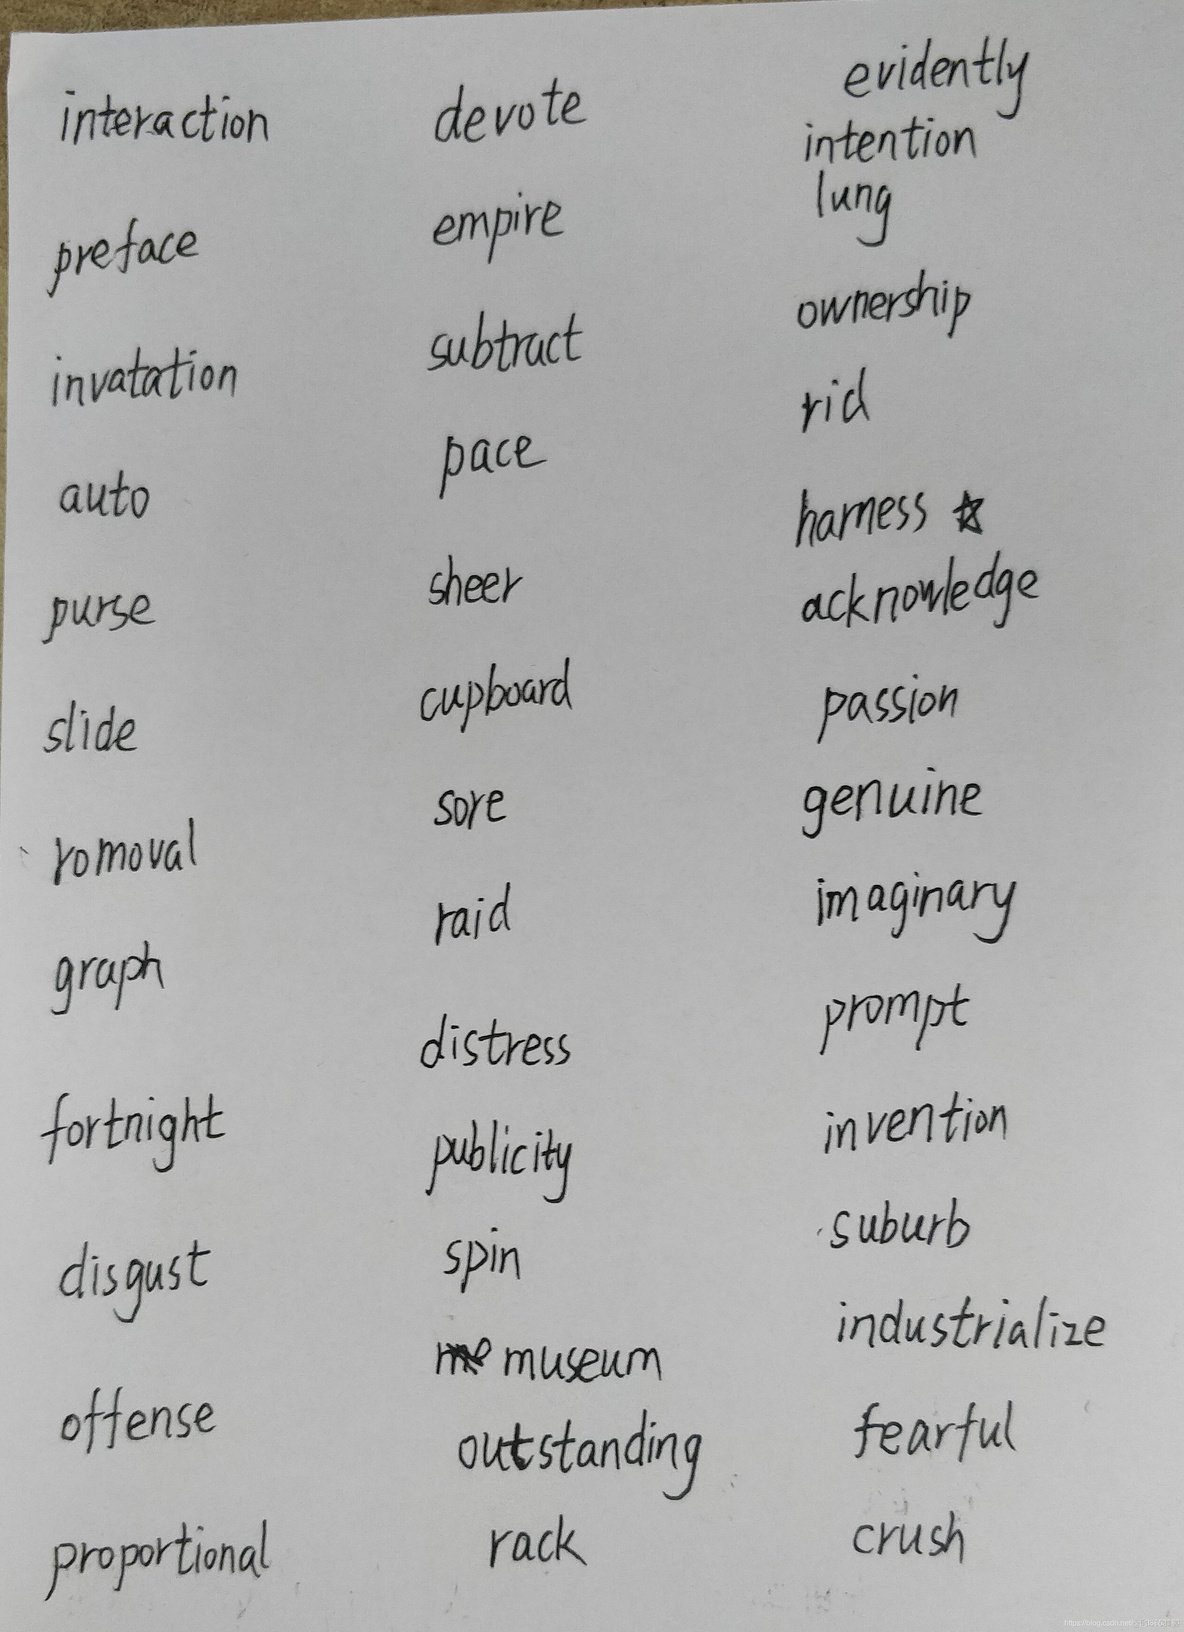 interaction
preface
invatation
auto
purse
slide
romoval
graph
fortnight
disgust
offense
proportional
devote
empire
subtract
pace
sheer
cupboard
sore
raid
distress
publicity
spin
museum
outstanding
rack
evidently
intention
lung
ownership
rid
harness ☆
acknowledge
passion
genuine
imaginary
prompt
invention
suburb
industrialize
fearful
crush